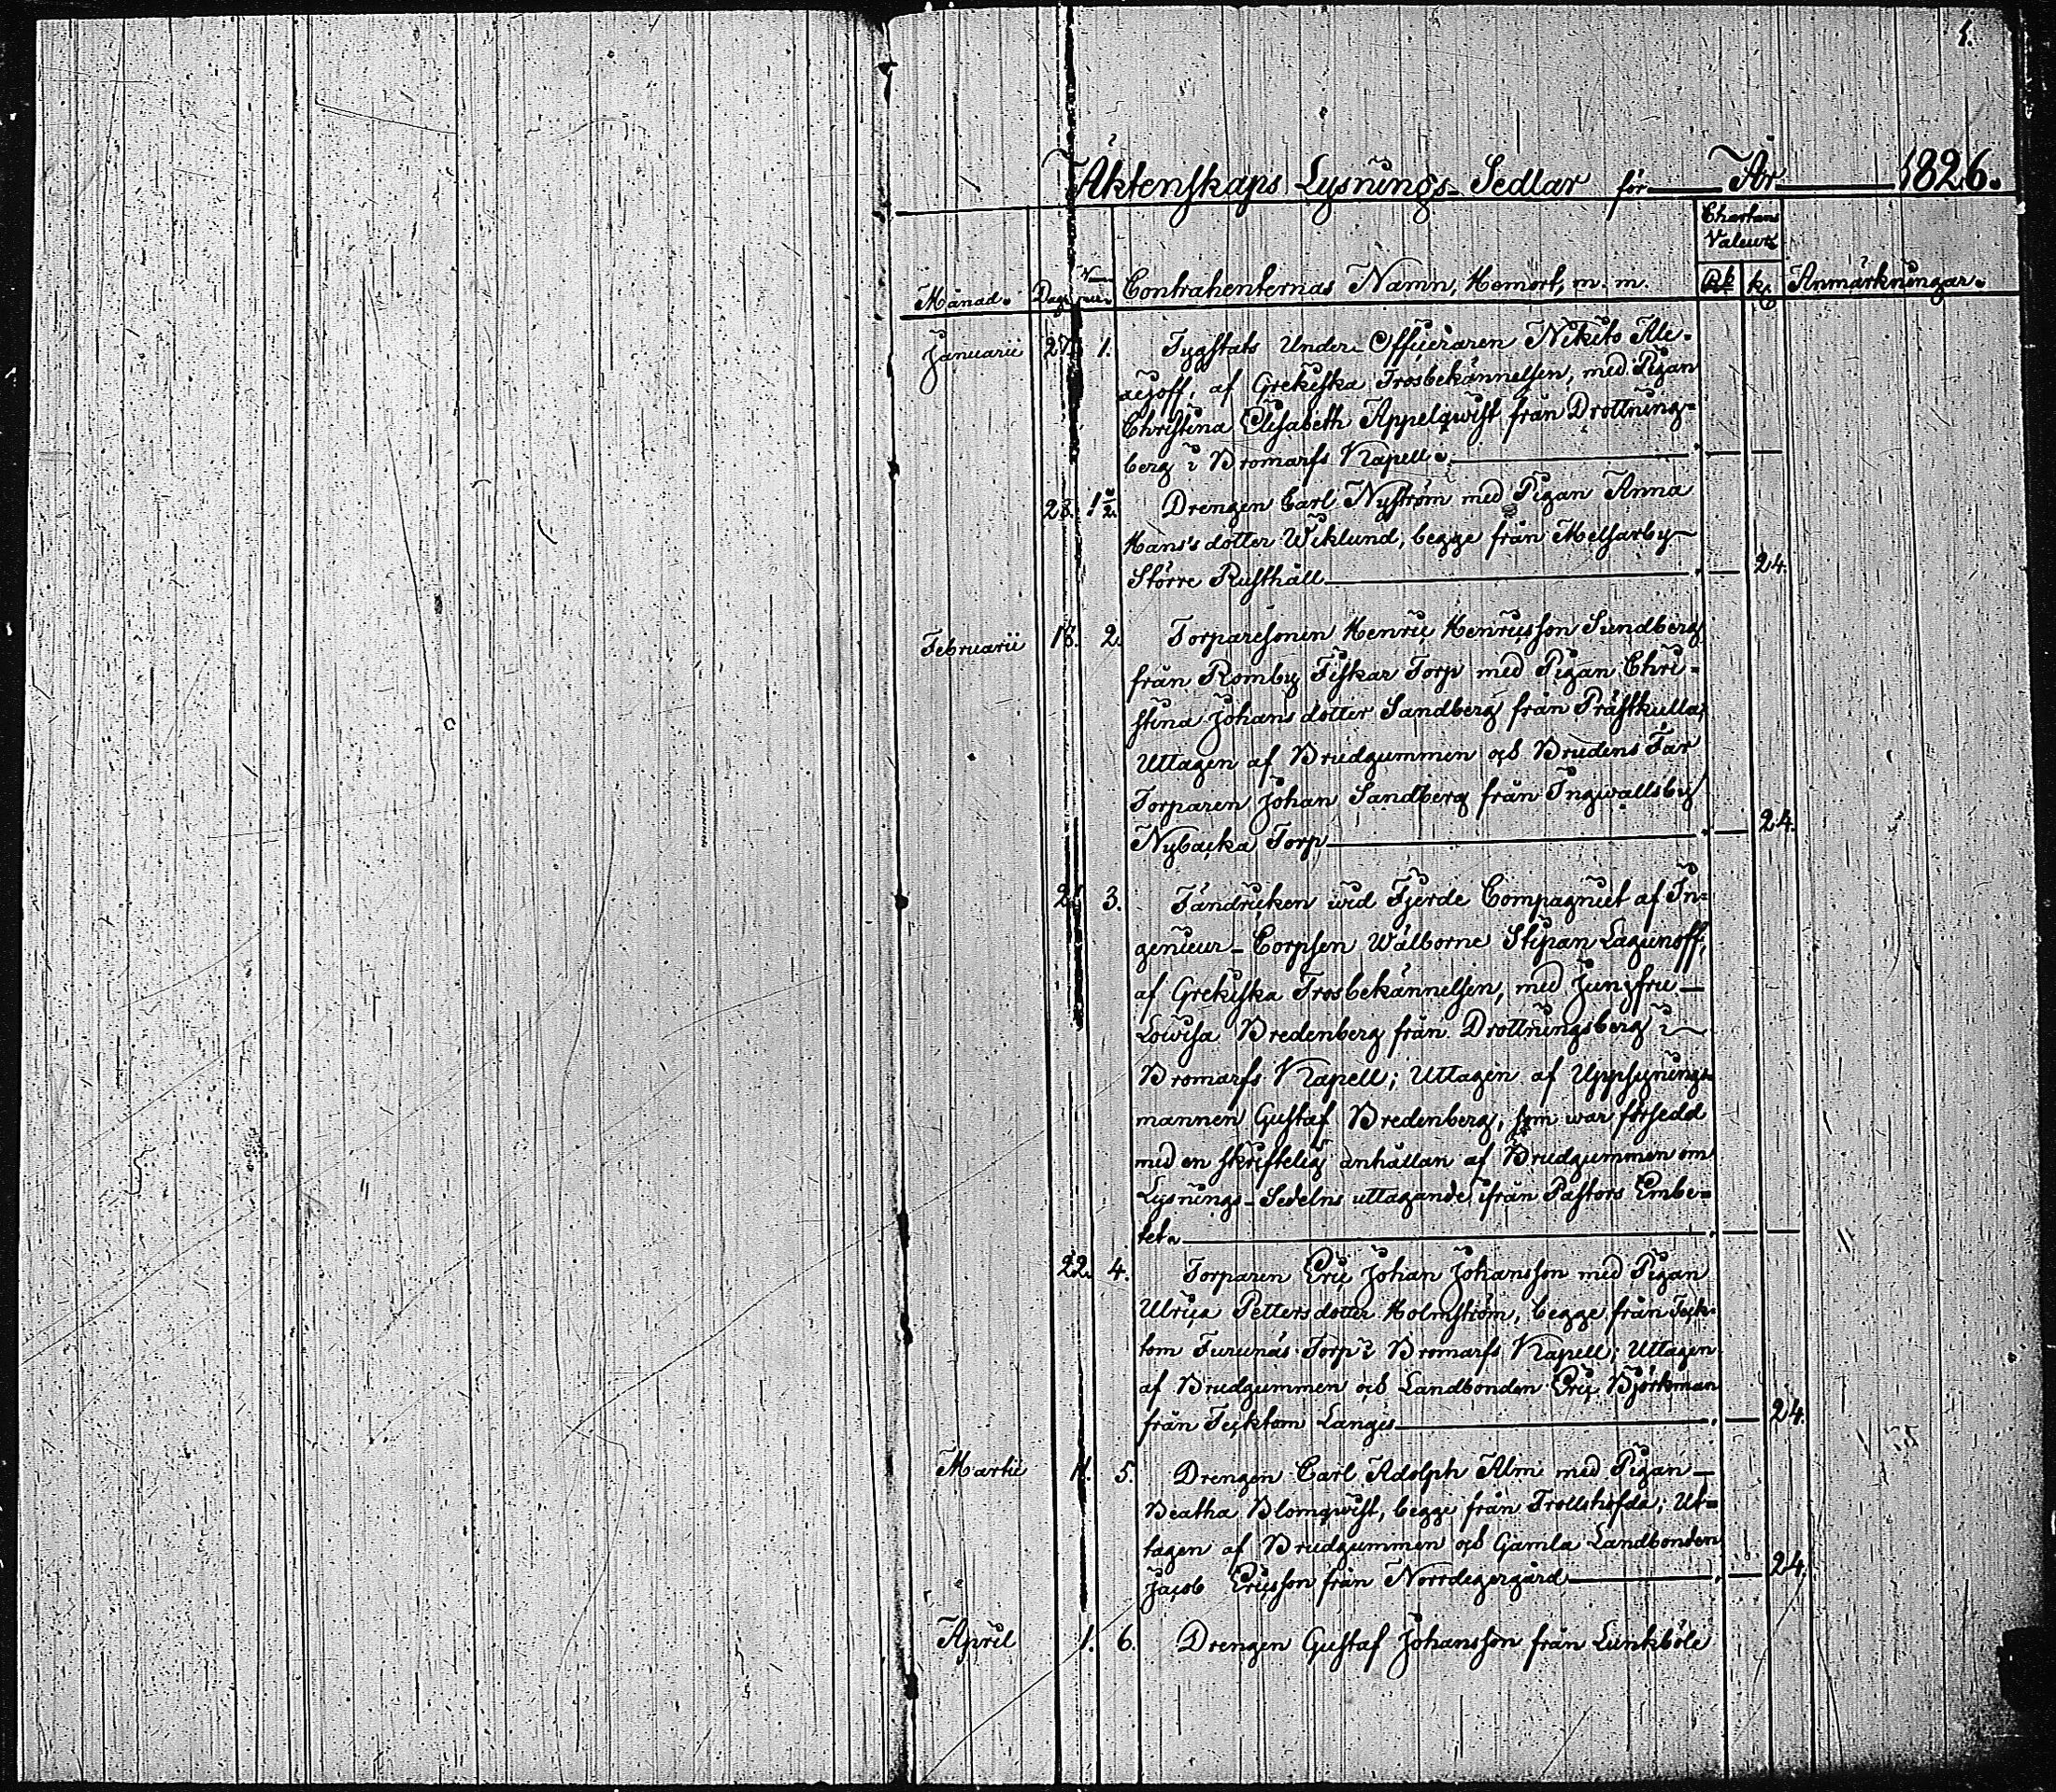 1.
Äktenskaps Lysnings-Sedlar för År 1826.
Chartans
Valeur.
Månad. Dag. Num- Contrahenternas Namn, Hemort, m. m. Rb. k. Anmärkningar.
Januarii 27. 1. Tygstats Under-Officieraren Nikito Ale-
af Grekiska Trosbekännelsen, med Pigan
Christina Elisabeth Appelqwist från Drottning-
berg i Bromarfs Kapell.
28. 1½. Drengen Carl Nyström med Pigan Anna
Hans's dotter Wiklund, begge från Melsarby
Större Rusthåll 24.
Februarii 18. 2. Torparesonen Henric Henricsson Sundberg
från Romby Fiskar Torp med Pigan Chri-
stina Johans dotter Sandberg från Prästkulla;
Uttagen af Brudgummen och Brudens Far
Torparen Johan Sandberg från Ingwallsby
Nybacka Torp 24.
21. 3. Fändricken wid Fjerde Compagniet af In-
genieur-Corpsen Wälborne Stepan Lagunoff,
af Grekiska Trosbekännelsen, med Jungfru
Lowisa Bredenberg från Drottningsberg i
Bromarfs Kapell; Uttagen af Uppsynings-
mannen Gustaf Bredenberg, som war försedd
med en skriftelig anhållan af Brudgummen om
Lysnings-Sedelns uttagande ifrån Pastors Embe-
tet.
22. 4. Torparen Eric Johan Johansson med Pigan
Ulrica Petters dotter Holmström, begge från Teck-
tom Furunäs Torp i Bromarfs Kapell; Uttagen
af Brudgummen och Landbonden Eric Björkman
från Tecktom Langis 24.
Martii 11. 5. Drengen Carl Adolph Alm med Pigan
Beatha Blomqwist, begge från Trollshofda; Ut-
tagen af Brudgummen och Gamla Landbonden
Jacob Ericsson från Norrdegergård 24.
April 1. 6. Drengen Gustaf Johansson från Lunkböle